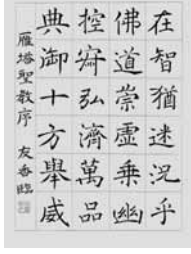 在智猶迷況乎
佛道崇虛乘幽
控寂弘濟萬品
典御十方舉威
雁塔聖教序 友香臨